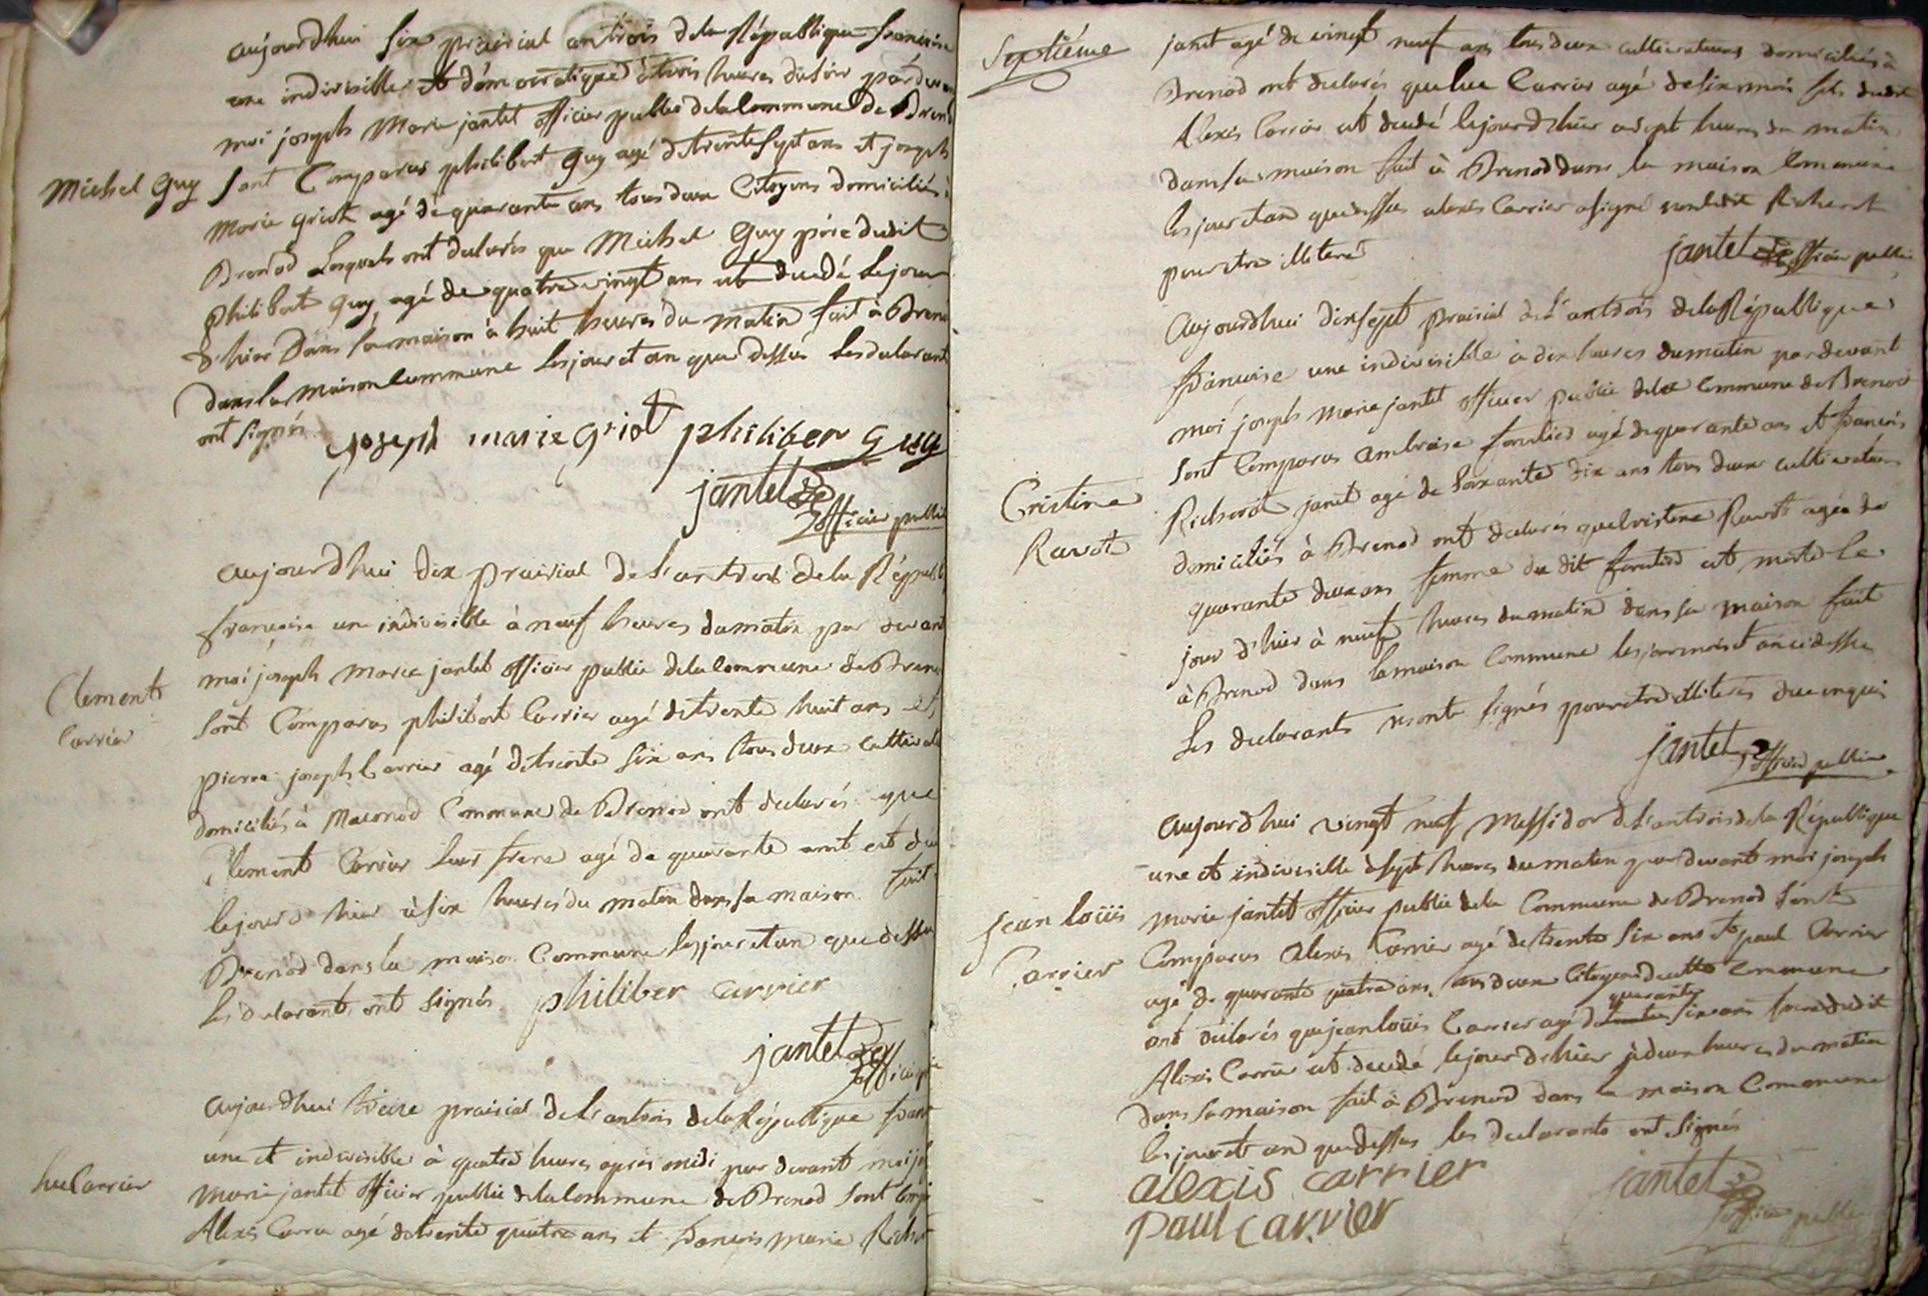 aujourdhui six prairial antrois dela République francoise
une indivisible et démocratique à trois heures du soir par devan
moi joseph Marie jantet officier public dela Commune de Breno
Michel Guy
sont Comparus philibert Guy agé de trente sept ans et joseph
Marie griot agé de quarante ans tous deux Citoyens domiciliés à
Brenod Lesquels ont declarés que Michel Guy père dudit
philibert Guy, agé de quatre vingt ans est decedé le jour
d'hier Dans sa maison à huit heures du matin fait à Breno
dans la Maison Commune les jour et an que dessus les declarant
ont signés
joseph marie griot philiber guy
jantet officier public
aujourdhui dix prairial de l'an trois dela Répub
francoise une indivisible à neuf heures du matin par devant
moi joseph Marie jantet officier public dela Commune de Breno
Clement
Carrier
sont Comparus philibert Carrier agé de trente huit ans et
pierre joseph Carrier agé de trente six ans tous deux cultivat
domiciliés à Maconod Commune de Brenod ont declarés que
Clement Carrier leur frere agé de quarante ans est de
le jour d'hier à six heures du matin dans sa maison fait
Brenod dans la maison Commune les jour et an que dessu
les declarants ont signés philiber carrier
jantet officier
aujourdhui treize prairial de l'an trois dela République franc
une et indivisible à quatre heures apres midi par devant moi jo
luc Carrier
Marie jantet officier public dela Commune de Brenod sont Comp
Alexis Carrier agé de trente quatre ans et francois Marie Richer
Septiéme
janet agé de vingt neuf ans tous deux cultivateurs domiciliés à
Brenod ont declarés que luc Carrier agé de six mois fils dudit
Alexis Carrier est decedé le jour d'hier à sept heures du matin
dans sa maison fait à Brenod dans la maison Commune
les jour et an que dessus alexis Carrier a signé non ledit Richerot
pour etre illiteré
jantet officier public
aujourdhui dix sept prairial de l'an trois dela République
francoise une indivisible à dix heures du matin par devant
moi joseph Marie jantet officier public dela Commune de Brenod
sont Comparus ambroise agé de quarante ans et francois
Cristine
Ravot
Richerot janet agé de soixante dix ans tous deux cultivateurs
domiciliés à Brenod ont declarés que Cristine Ravot agée de
quarante deux ans femme du dit est morte le
jour d'hier à neuf heures du matin dans sa maison fait
à Brenod dans la maison Commune les jour mois et an ci dessus
les declarants n'ont signés pour etre illiteres de ce enquis
jantet officier public
aujourdhui vingt neuf Messidor de l'an trois dela République
une et indivisible à sept heures du matin par devant moi joseph
jean loüis
Carrier
Marie jantet officier public dela Commune de Brenod sont
Comparus alexis Carrier agé de trente six ans et paul Carrier
agé de quarante quatre ans tous deux Citoyens de cette Commune
ont déclarés que jean loüis Carrier agé de quarante six ans frere dudit
Alexis Carrier est decedé le jour d'hier à deux heures du matin
dans sa maison fait à Brenod dans la maison Commune
les jour et an que dessus les declarants ont signés
alexis carrier jantet
paul carrier officier public